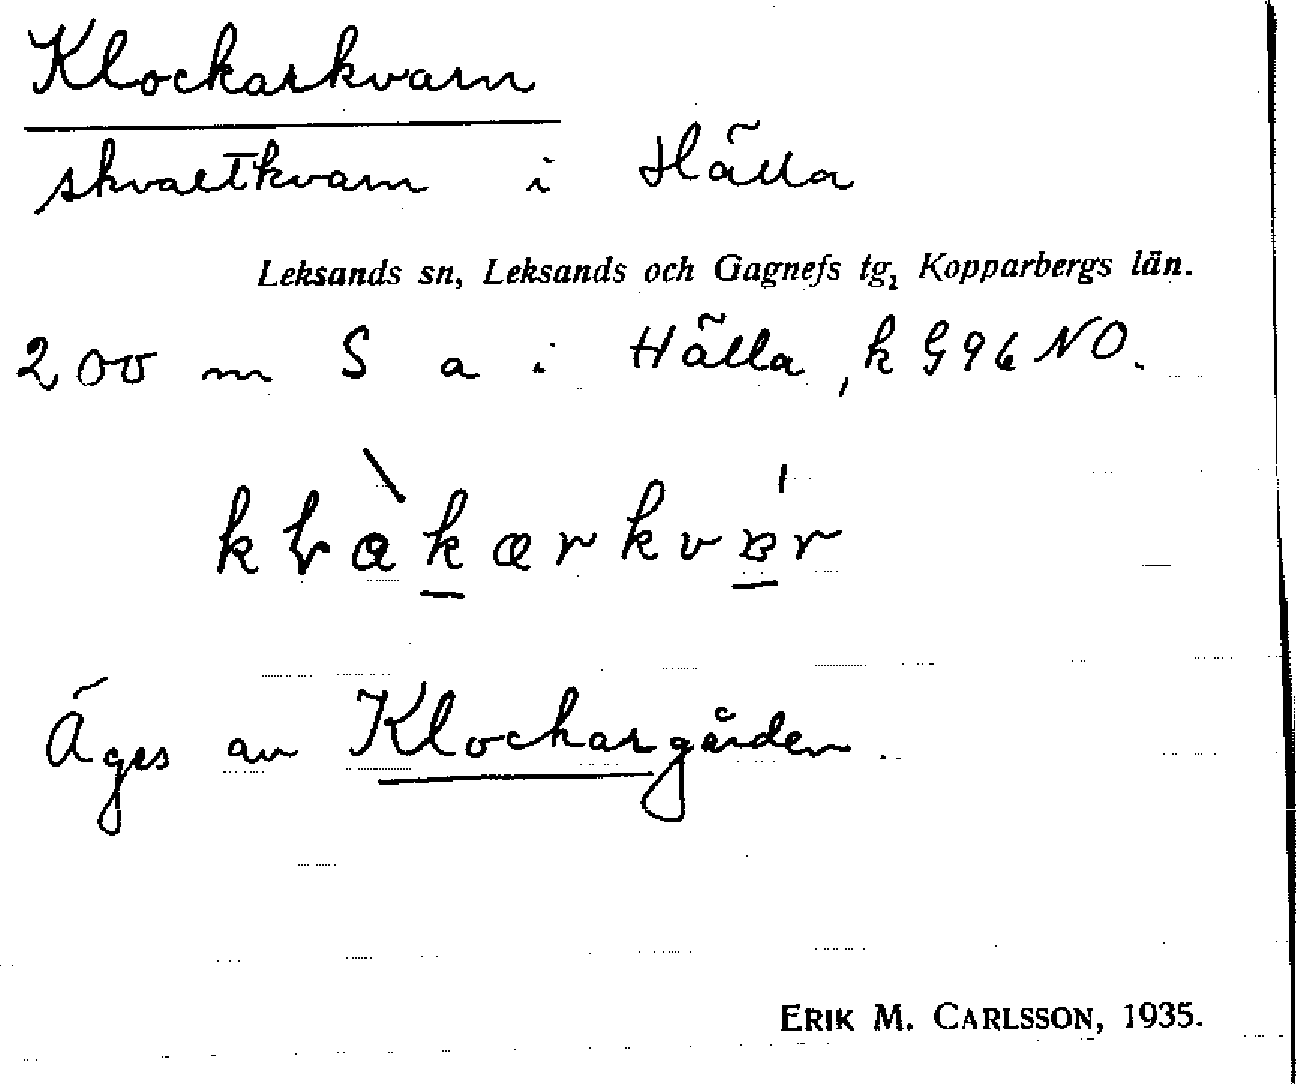 Klockarkvarn
skvaltkvarn i Hälla
Leksands sn, Leksands och Gagnefs tg, Kopparbergs län.
200 m S a i Hälla, k G 96 NO.
Äges av Klockargården.
ERIK M. CARLSSON, 1935.